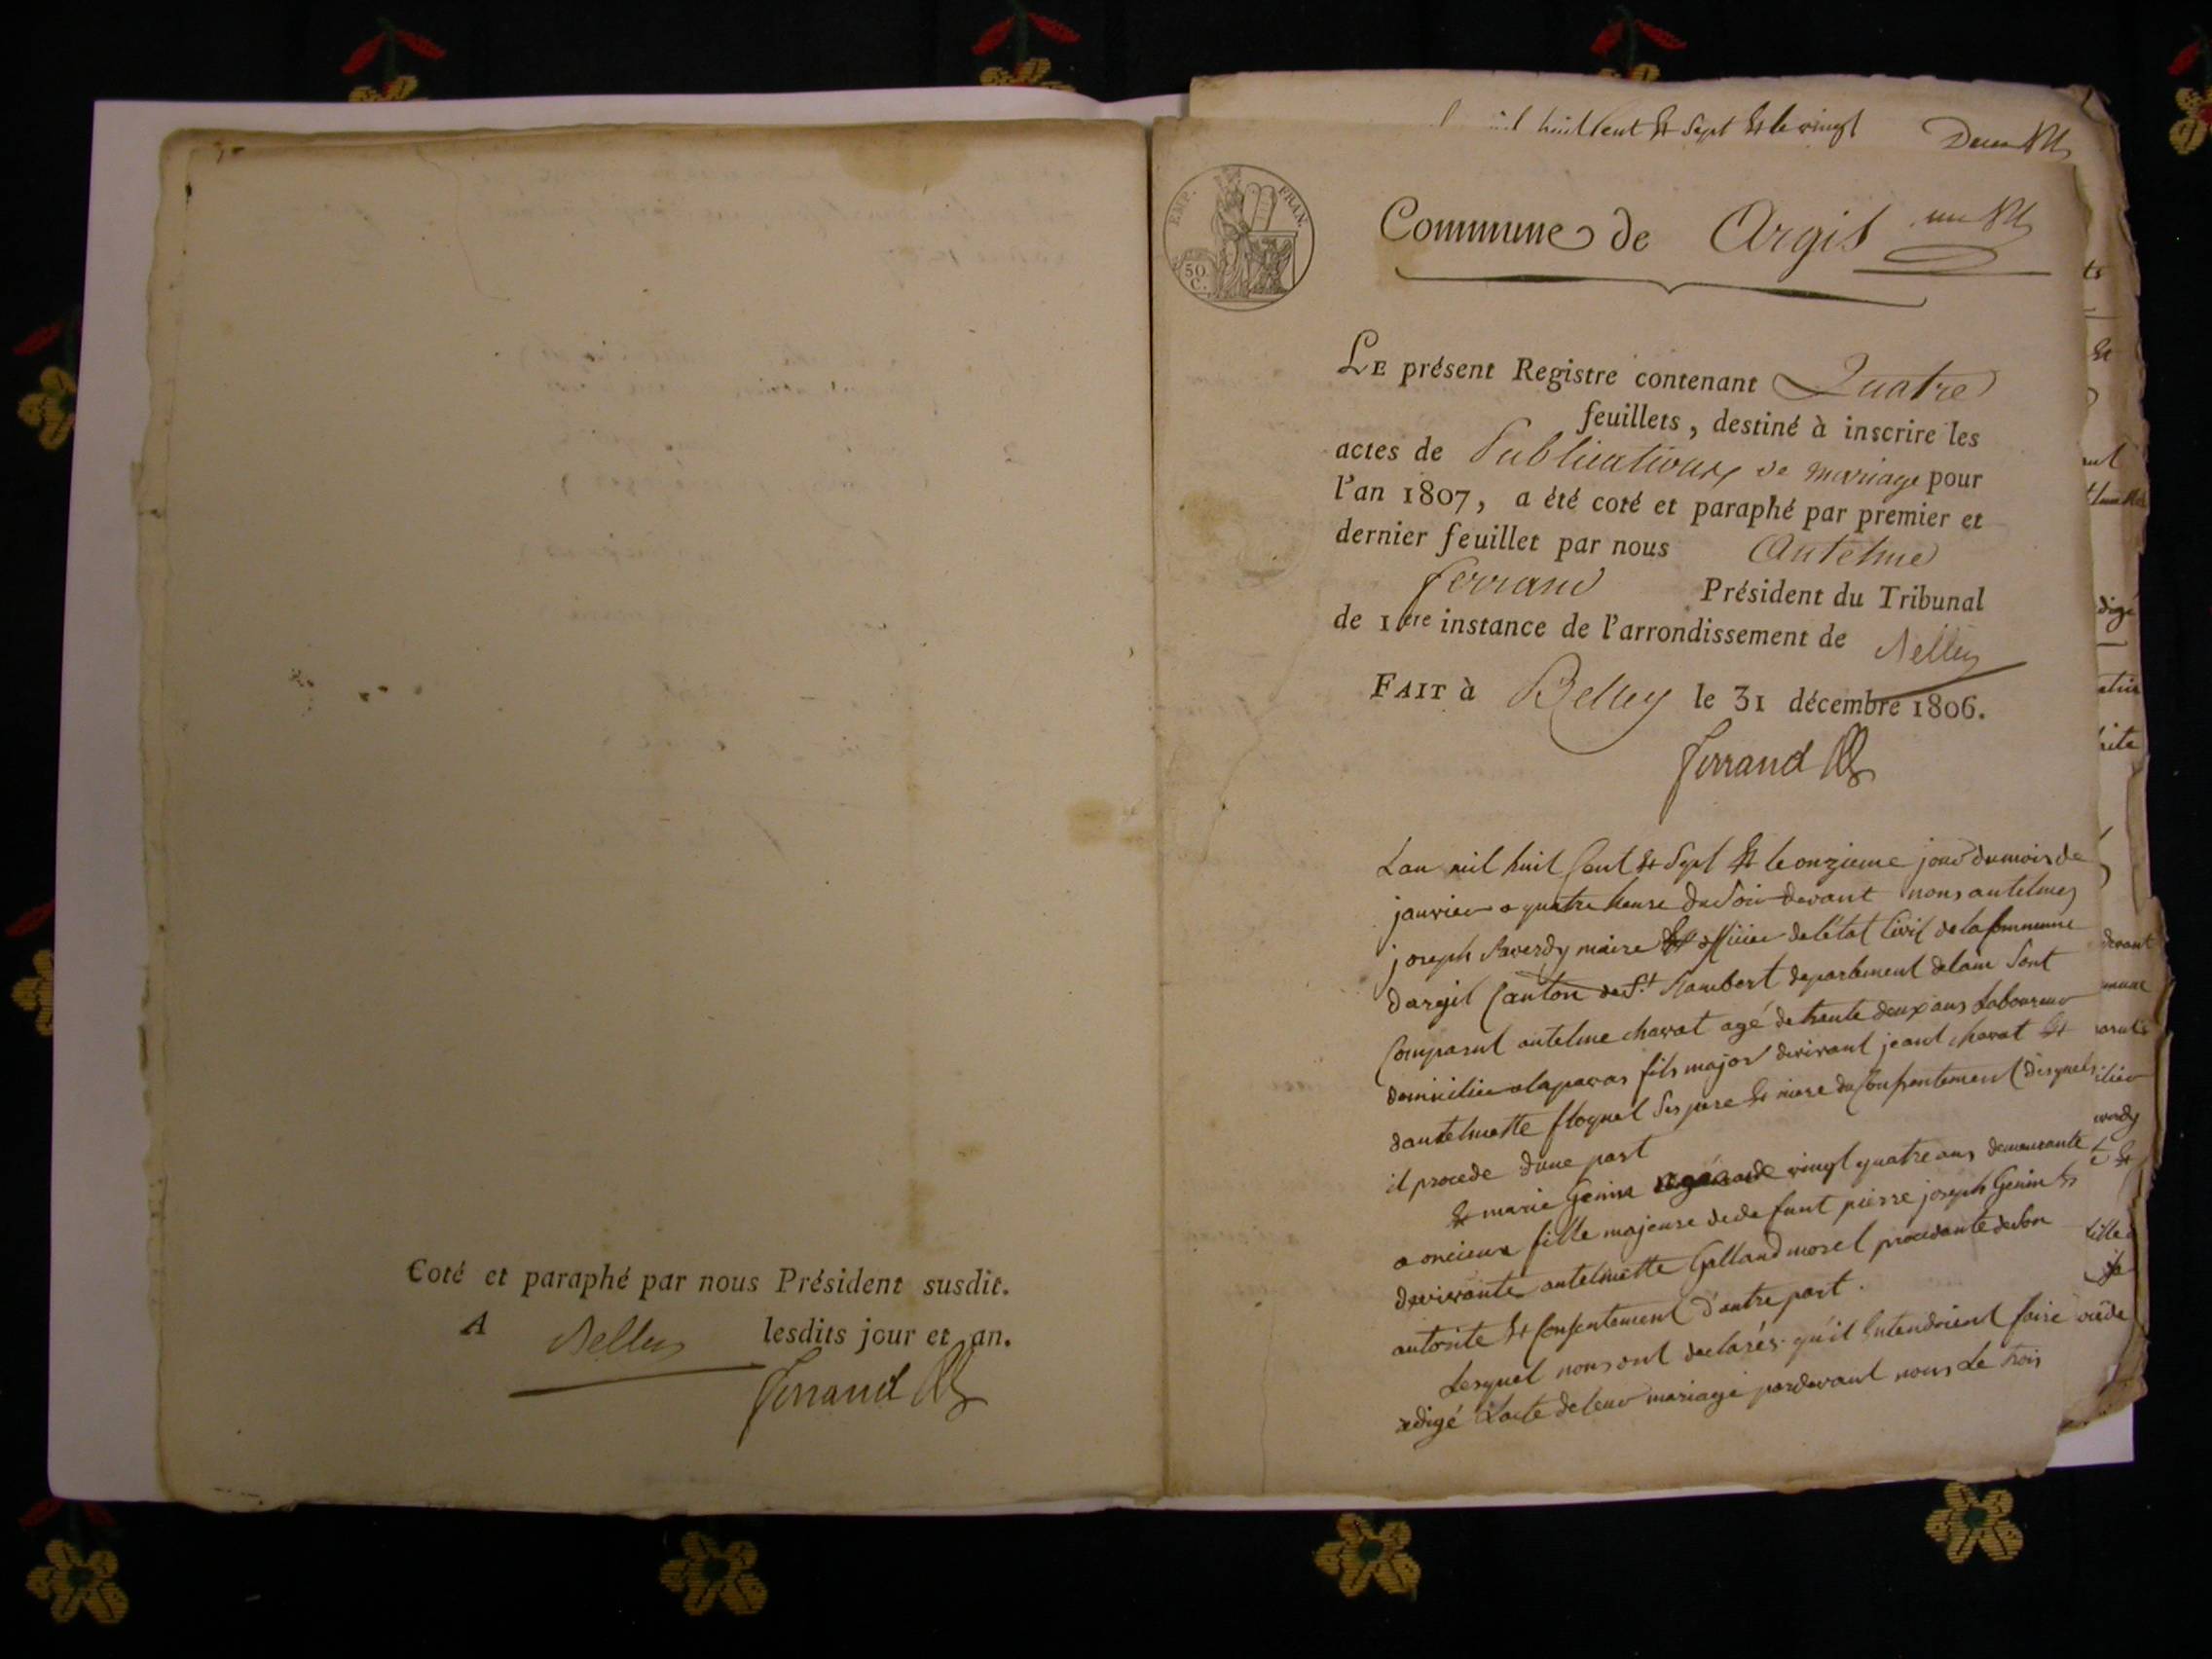 Coté et paraphé par nous Président susdit.
A Belley lesdits jour et an.
Ferrand
huit Cent et Sept et le vingt
Deux
EMP. FRAN.
50
C.
Commune de Argis
un
LE présent Registre contenant Quatre
feuillets, destiné à inscrire les
actes de Publications de mariage pour
l'an 1807, a été coté et paraphé par premier et
dernier feuillet par nous Antelme
Ferrand Président du Tribunal
de 1ere instance de l'arrondissement de Belley
FAIT à Belley le 31 décembre 1806.
Ferrand
Lan mil huit Cent et Sept et le onzieme jour du mois de
janvier a quatre heure du Soir devant nous antelme
joseph Saverdy maire et officier de l'état Civil de la Commune
dargil Canton de St Rambert departement de lain Sont
Comparut antelme charat agé de trente deux ans Laboureur
domicilier a laparas fils major devivant jeant charat et
dantelmette floquet Ses pere et mere du Consentement desquels
il procede dune part
et marie Genin vingt quatre ans demeurante
a oncieux fille majeure de defunt pierre joseph Genin et
devivante antelmette Galland morel procedante de Son
autorite et Consentement d'autre part.
Lesquel nous ont declarés qu'il Entendoient faire
redigé Lacte de leur mariage pardevant nous Le trois